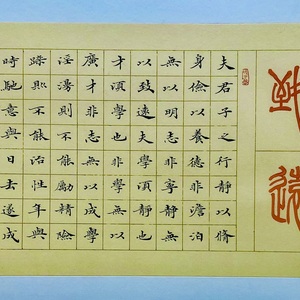 致遠
夫君子之行靜以脩
身儉以養德非澹泊
無以明志非寧靜無
以致遠夫學須靜也
才須學也非學無以
廣才非志無以成學
淫漫則不能勵精險
躁則不能治性年與
時馳意與日去遂成